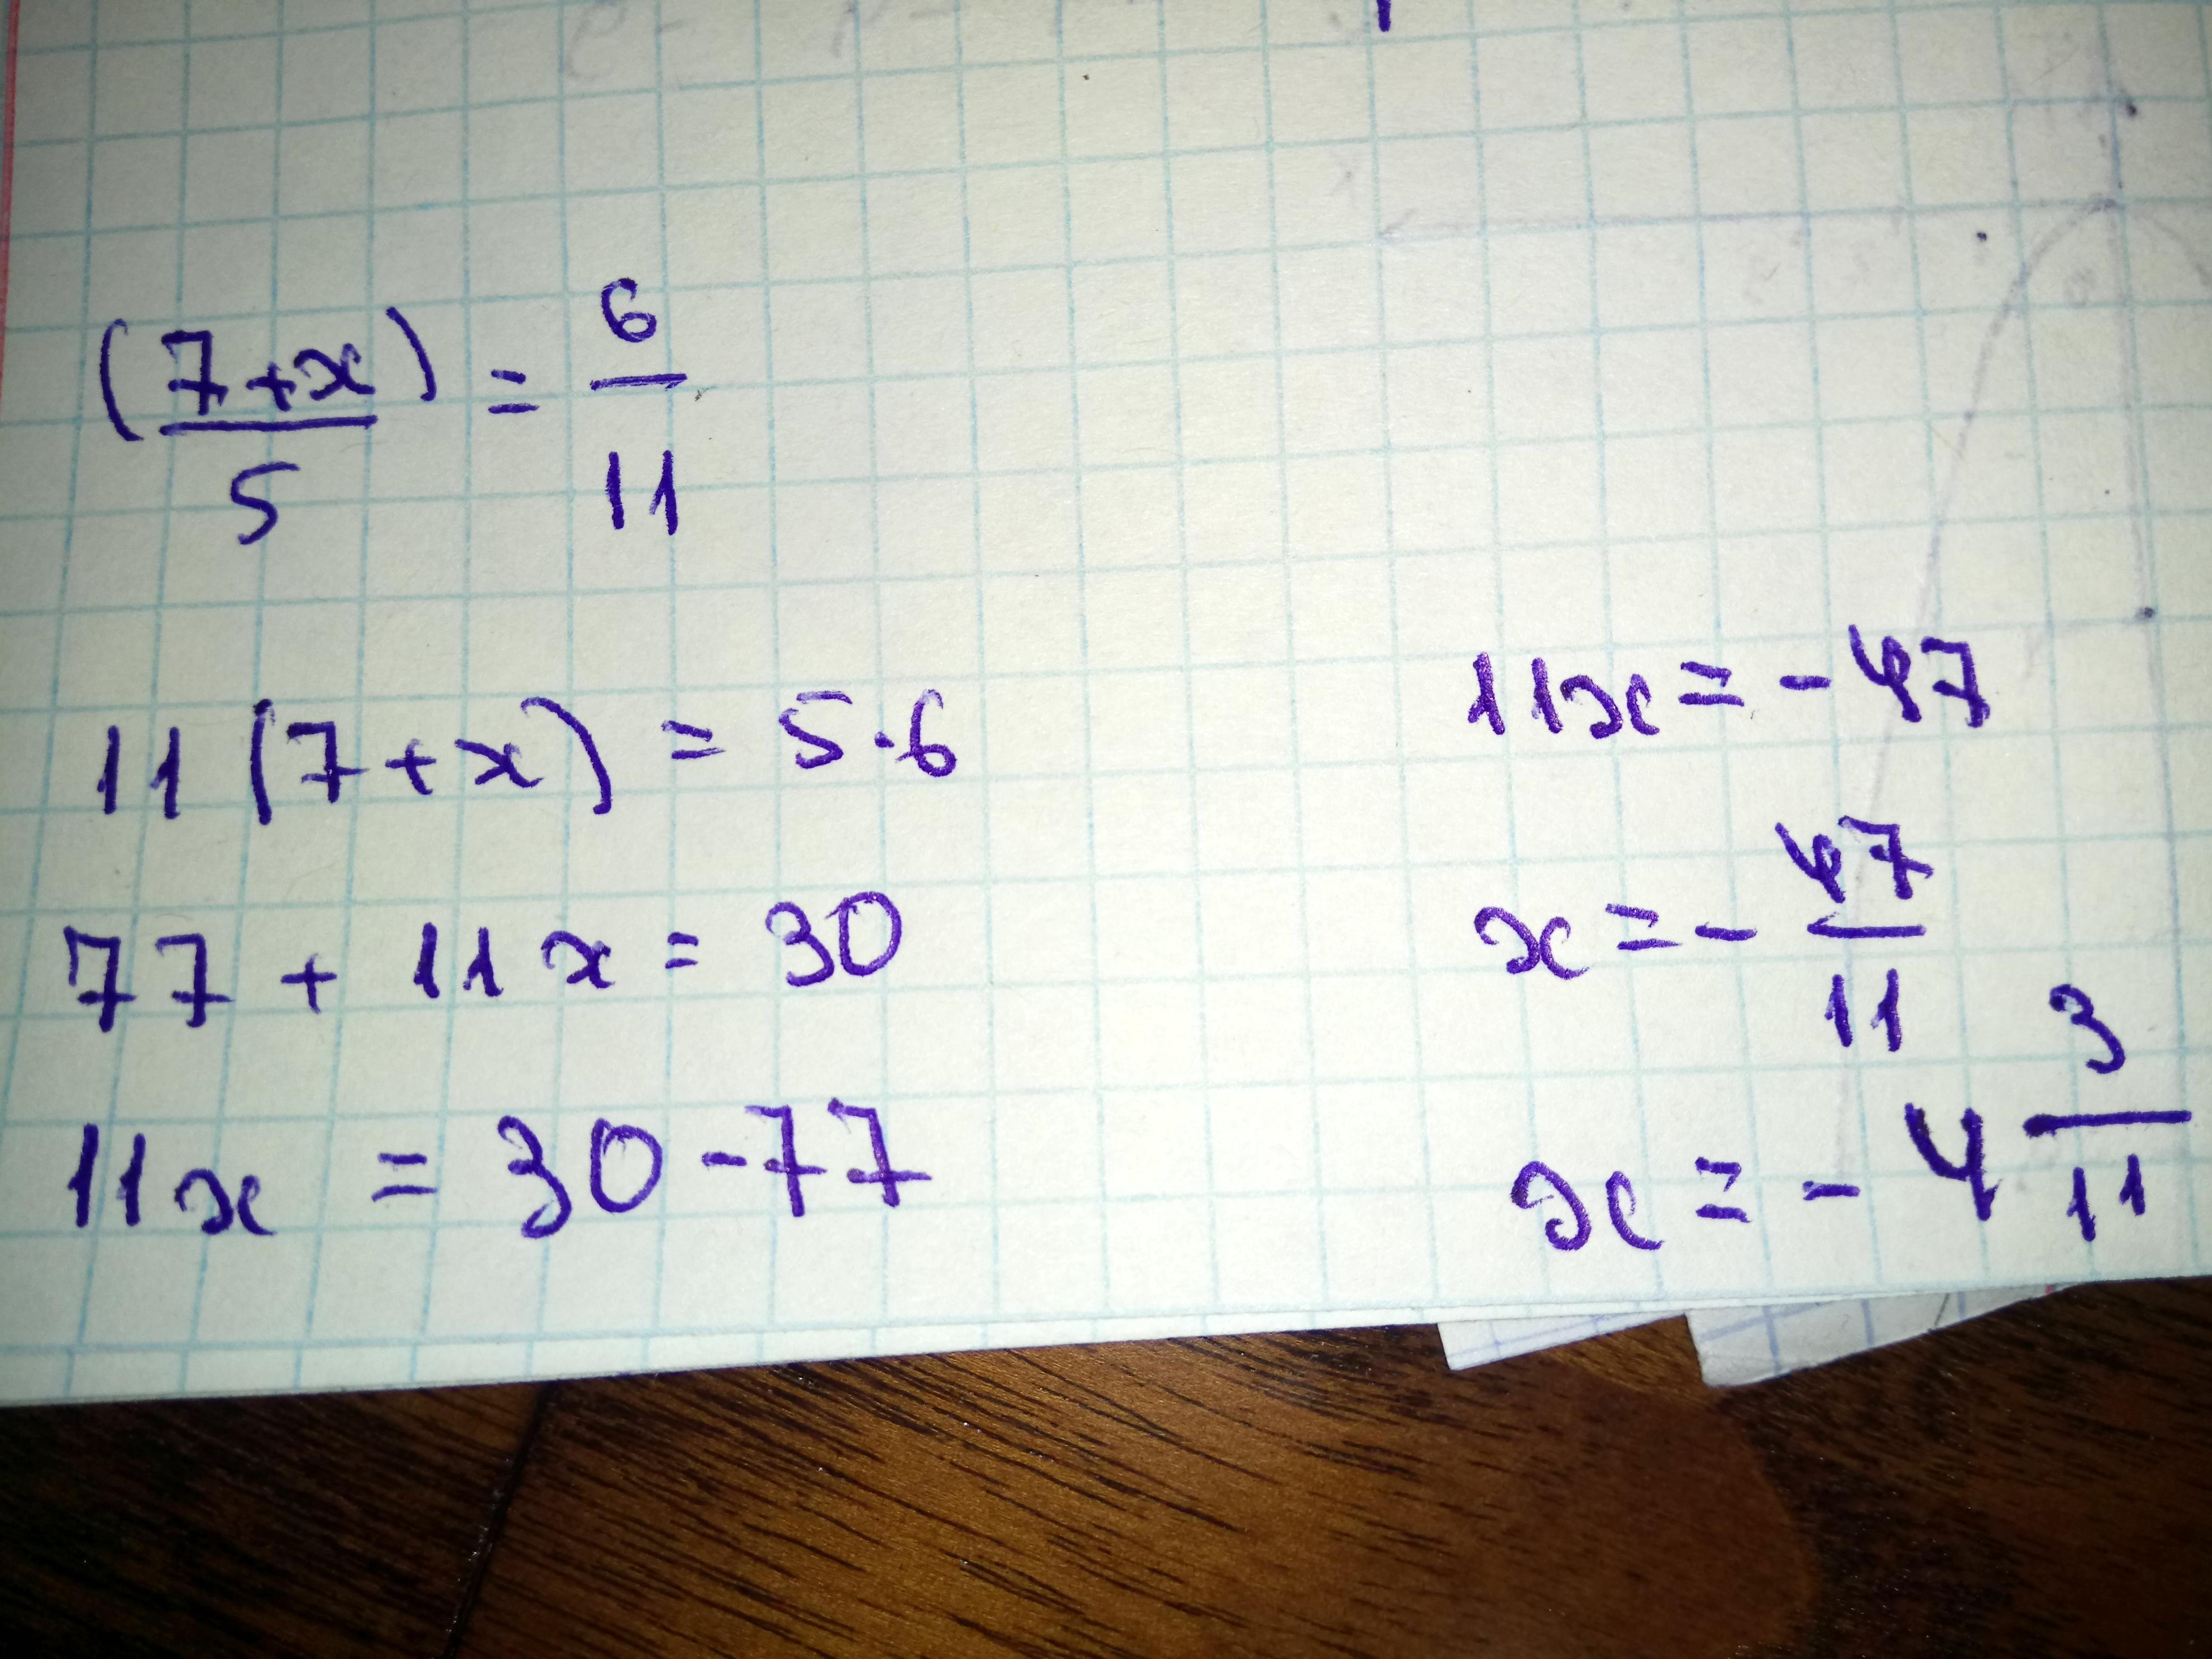 (7+x)/5 = 6/11
11(7+x) = 5·6
77 + 11x = 30
11x = 30-77
11x = -47
x = - 47/11
x = - 4 3/11